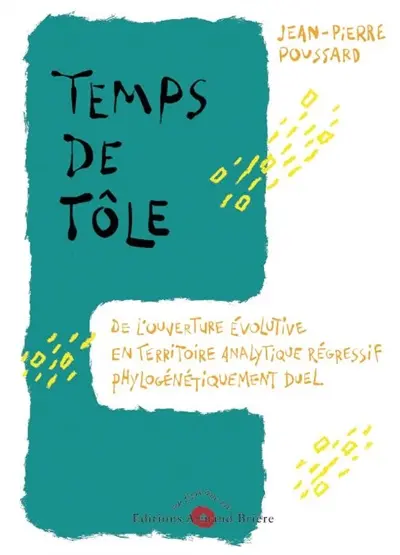 JEAN-PIERRE
POUSSARD
TEMPS
DE
TÔLE
DE L'OUVERTURE ÉVOLUTIVE
EN TERRITOIRE ANALYTIQUE RÉGRESSIF
PHYLOGÉNÉTIQUEMENT DUEL
Editions Armand Brière